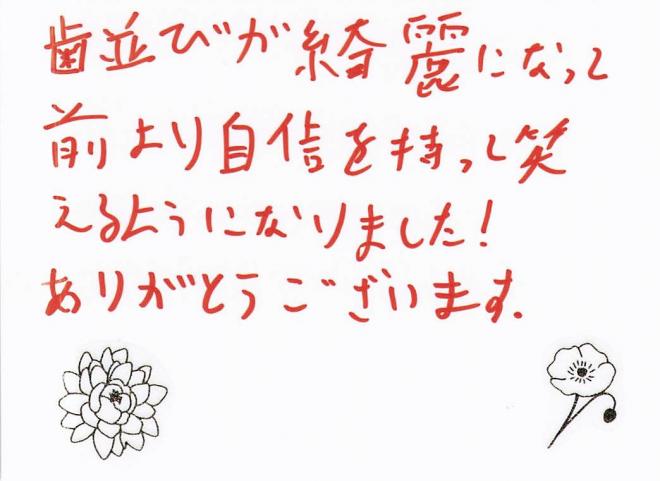 歯並びが綺麗になって
前より自信を持って笑
えるようになりました!
ありがとうございます.